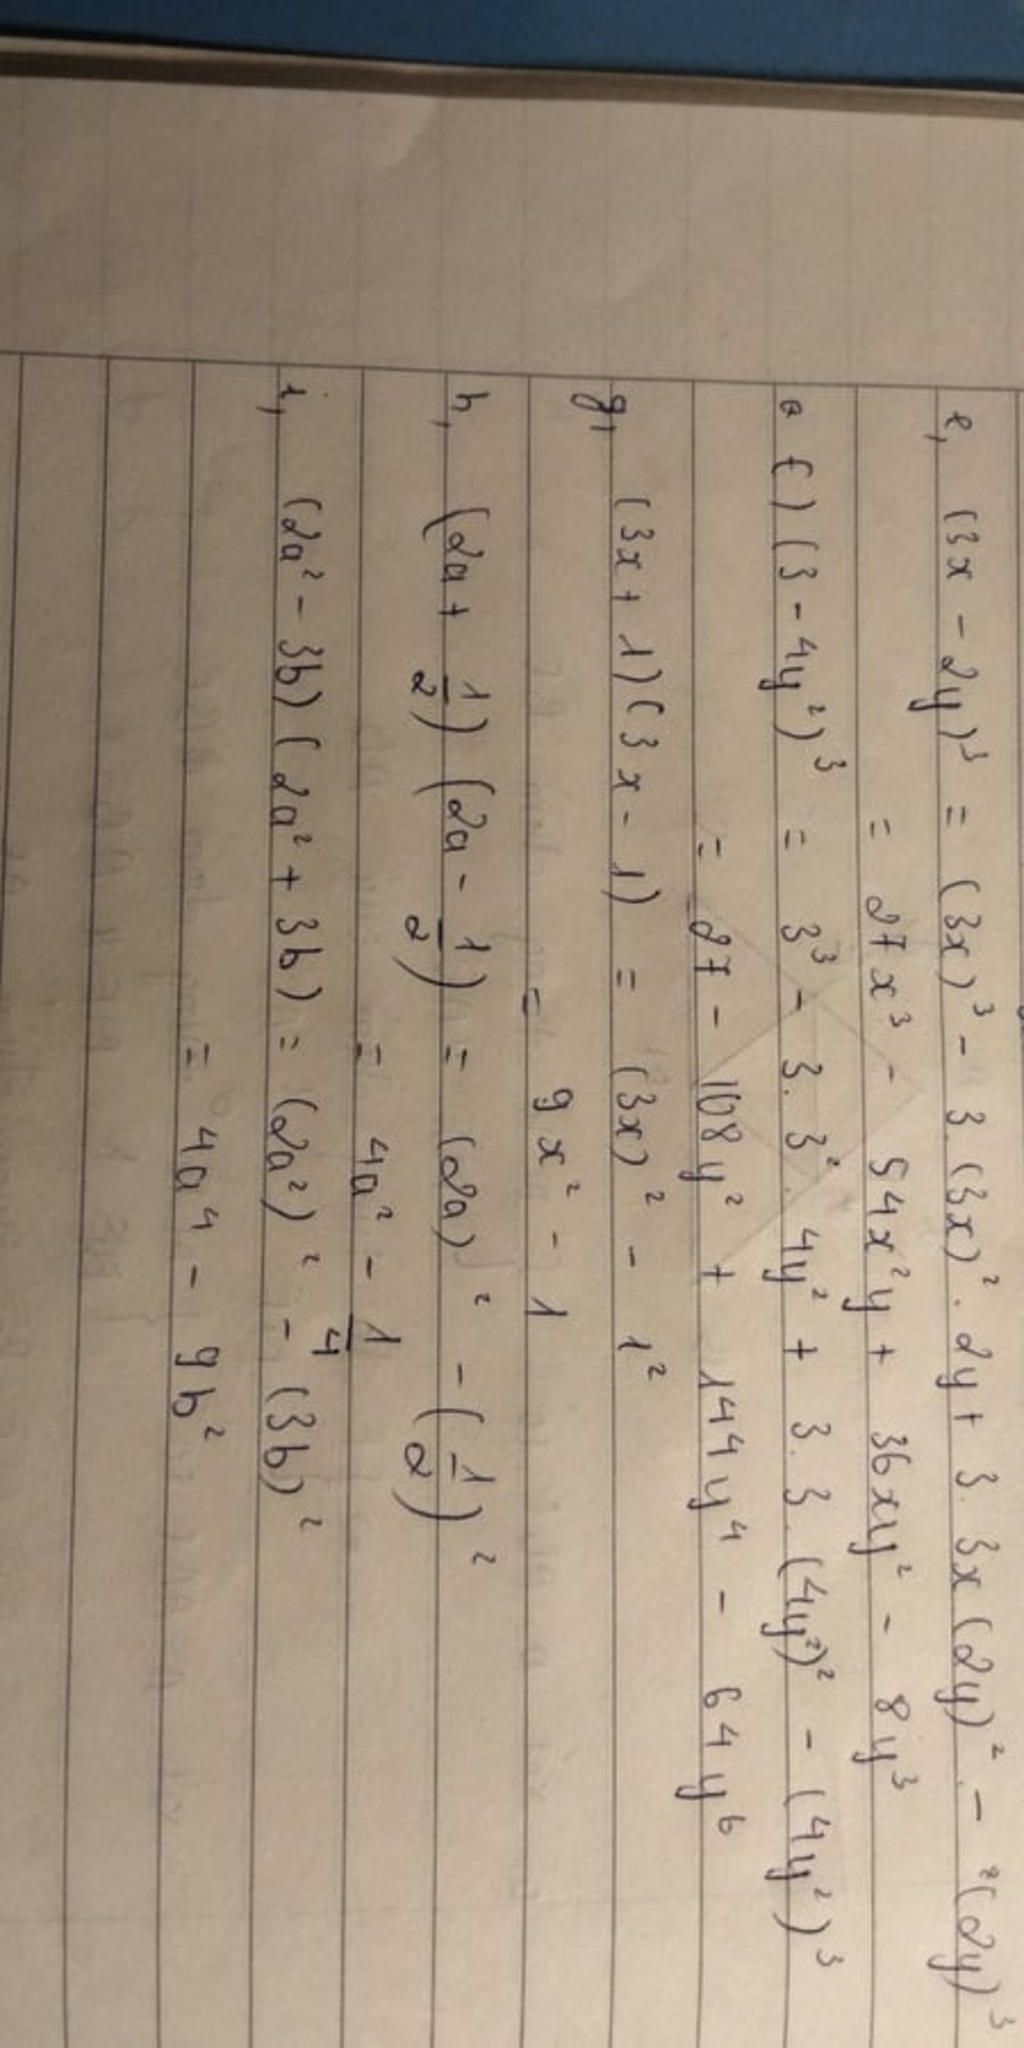 e, (3x - 2y)³ = (3x)³ - 3.(3x)². 2y + 3. 3x (2y)² - (2y)³
= 27x³ - 54x²y + 36xy² - 8y³
f) (3 - 4y²)³ = 3³ - 3. 3². 4y² + 3. 3. (4y²)² - (4y²)³
= 27 - 108y² + 144y⁴ - 64y⁶
g, (3x + 1)(3x - 1) = (3x)² - 1²
= 9x² - 1
h, (2a + 1/2) (2a - 1/2) = (2a)² - (1/2)²
= 4a² - 1/4
i, (2a² - 3b) (2a² + 3b) = (2a²)² - (3b)²
= 4a⁴ - 9b²